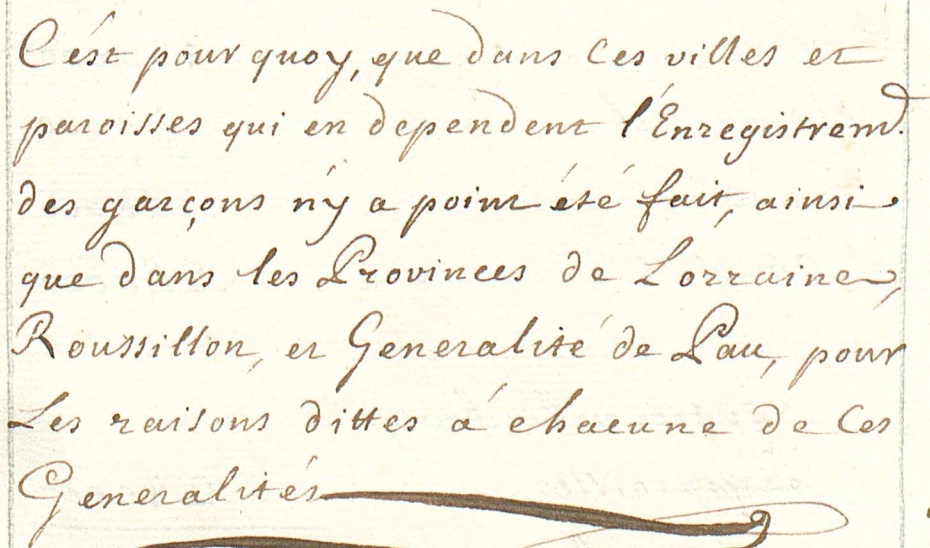 C'ést pour quoy, que dans Ces villes et
paroisses qui en dependent l'Enregistremt.
des garçons n'y a point été fait, ainsi
que dans les Provinces de Lorraine,
Roussillon, et Generalité de Pau, pour
Les raisons dittes á chacune de Ces
Generalités